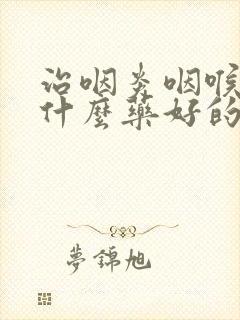 治咽炎咽喉
什麼藥好的
夢錦旭